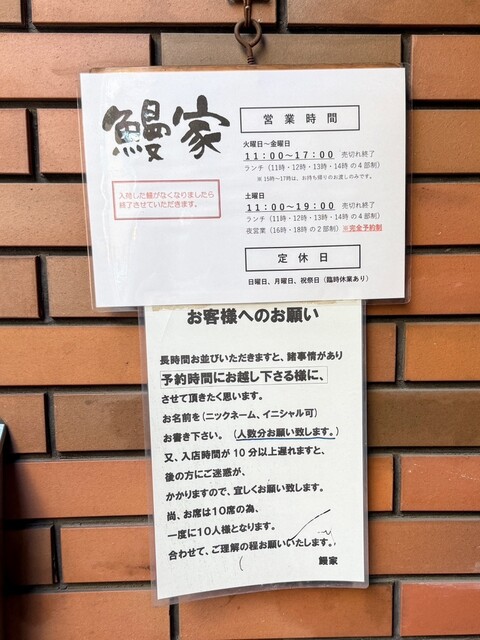 鰻家
営業時間
火曜日～金曜日
11:00～17:00 売切れ終了
ランチ（11時・12時・13時・14時 の４部制）
※15時～17時は、お持ち帰りのお渡しのみです。
入荷した鰻がなくなりましたら
終了させていただきます。
土曜日
11:00～19:00 売切れ終了
ランチ（11時・12時・13時・14時 の４部制）
夜営業（16時・18時 の２部制）※完全予約制
定休日
日曜日、月曜日、祝祭日（臨時休業あり）
お客様へのお願い
長時間お並びいただきますと、諸事情があり
予約時間にお越し下さる様に、
させて頂きたく思います。
お名前を（ニックネーム、イニシャル可）
お書き下さい。（人数分お願い致します。）
又、入店時間が 10 分以上遅れますと、
後の方にご迷惑が、
かかりますので、宜しくお願い致します。
尚、お席は１０席の為、
一度に１０人様となります。
合わせて、ご理解の程お願いいたします。
鰻家